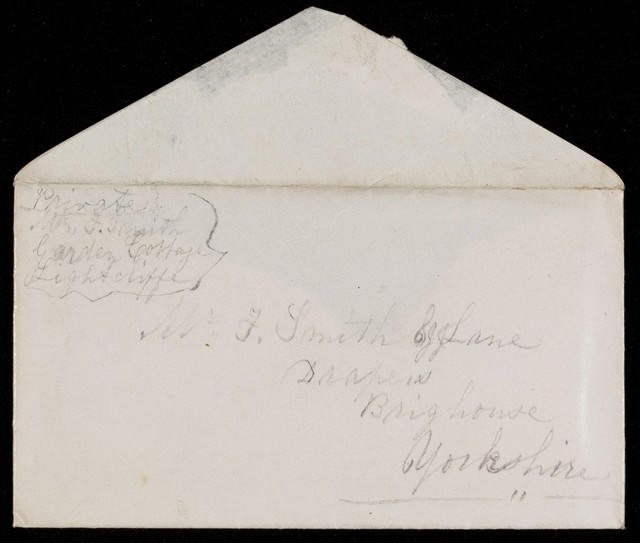 Private
Mr. F. Smith
Garden Cottage
Lightcliffe
Mr. F. Smith & Lane
Drapers
Brighouse
Yorkshire